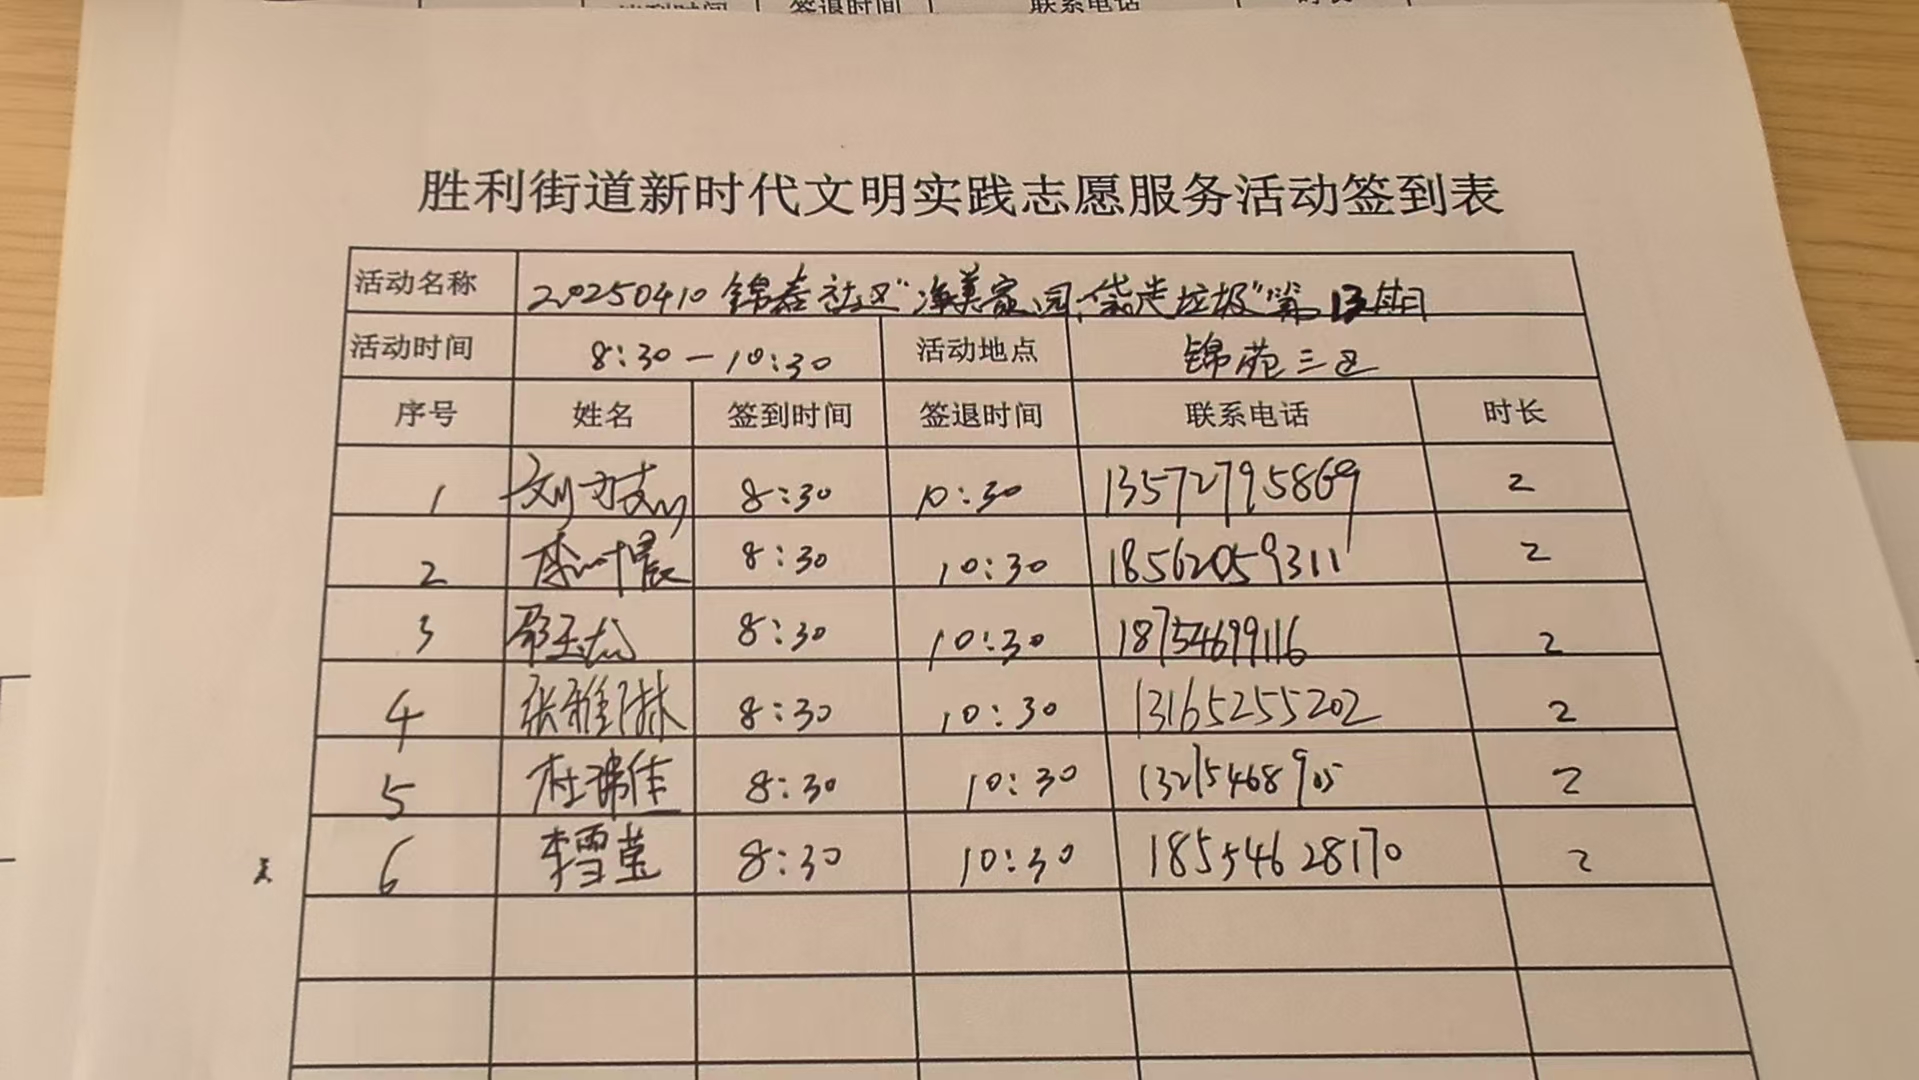 签到时间 签退时间 联系电话 时长
胜利街道新时代文明实践志愿服务活动签到表
活动名称 20250410锦泰社区“净美家园,袋走垃圾”第13期
活动时间 8:30—10:30 活动地点 锦苑三区
序号 姓名 签到时间 签退时间 联系电话 时长
1 刘 8:30 10:30 13572795869 2
2 李叶晨 8:30 10:30 18562059311 2
3 邵玉龙 8:30 10:30 18754699116 2
4 张雅琳 8:30 10:30 13165255202 2
5 杜瑞佳 8:30 10:30 13215468905 2
6 李雪莹 8:30 10:30 18554628170 2